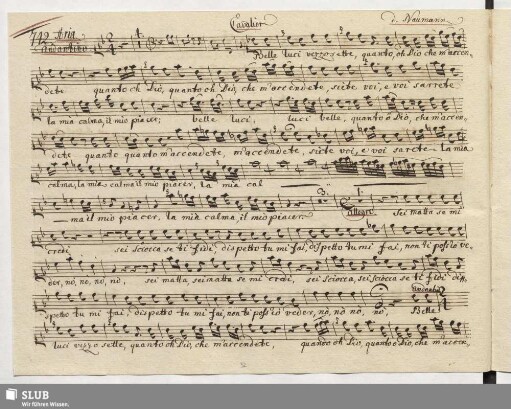 Cavalier
d. Naumann
742 Aria
Andantino
Belle luci vezzosette, quanto, oh Dio che m'accen,
dete quanto oh Dio, quanto oh Dio, che m'accendete, siete voi, e voi sarete
la mia calma, il mio piacer, belle luci, luci belle, quanto o Dio, che m'accen,
dete quanto quanto m'accendete, m'accendete, siete voi, e voi sarete la mia
calma, la mia calma il mio piacer, la mia cal
ma il mio piacer, la mia calma, il mio piacer.
3.
1.
Allegro.
sei matta se mi
credi sei sciocca se ti fidi, dispetto tu mi fai, dispetto tu mi fai, non ti posso ve,
der, no, no, no, no, sei matta, sei matta se mi credi, sei sciocca, sei sciocca se ti fidi dis,
Andantino
petto tu mi fai, dispetto tu mi fai, non ti posso veder, no, no, no, no, Belle
luci vezzosette, quanto oh Dio, che m'accendete, quando oh Dio, quanto o Dio, che m'accen,
SLUB
Wir führen Wissen.